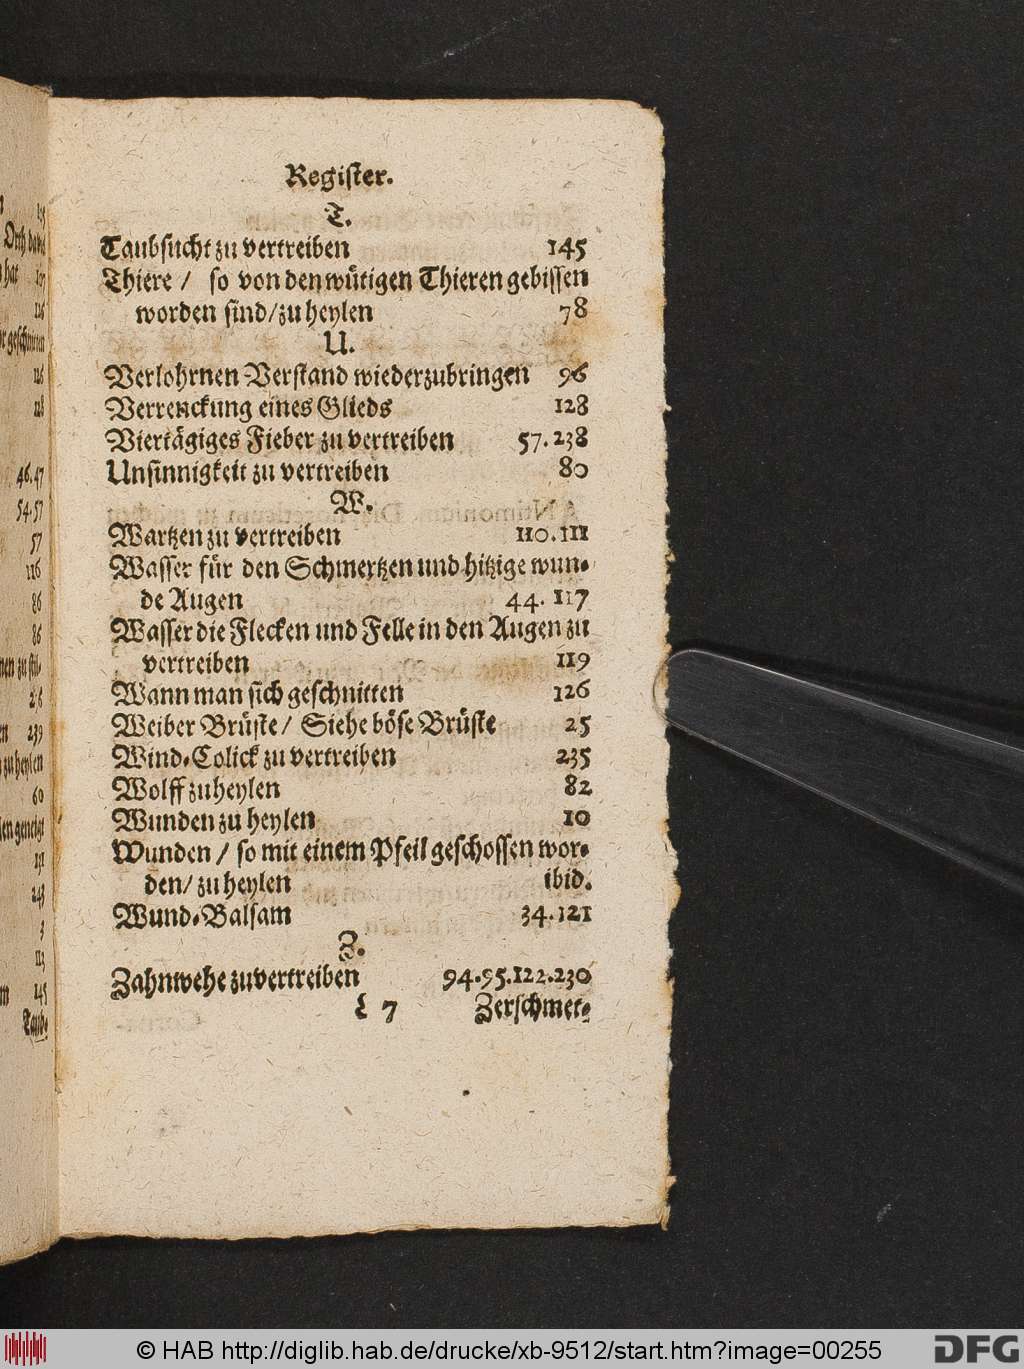 Register.
T.
Taubsucht zu vertreiben 145
Thiere / so von den wütigen Thieren gebissen
worden sind/ zu heylen 78
U.
Verlohrnen Verstand wiederzubringen 96
Verrenckung eines Glieds 128
Viertägiges Fieber zu vertreiben 57.238
Unsinnigkeit zu vertreiben 80
W.
Wartzen zu vertreiben 110.111
Wasser für den Schmertzen und hitzige wun-
de Augen 44. 117
Wasser die Flecken und Felle in den Augen zu
vertreiben 119
Wann man sich geschnitten 126
Weiber Brüste/ Siehe böse Brüste 25
Wind-Colick zu vertreiben 235
Wolff zu heylen 82
Wunden zu heylen 10
Wunden / so mit einem Pfeil geschossen wor-
den/ zu heylen ibid.
Wund-Balsam 34.121
Z.
Zahnwehe zuvertreiben 94.95.122.230
L 7 Zerschmet-
46.47
54.57
57
116
86
86
239
zu heylen
60
243
3
113
245
Taub-
© HAB http://diglib.hab.de/drucke/xb-9512/start.htm?image=00255
DFG